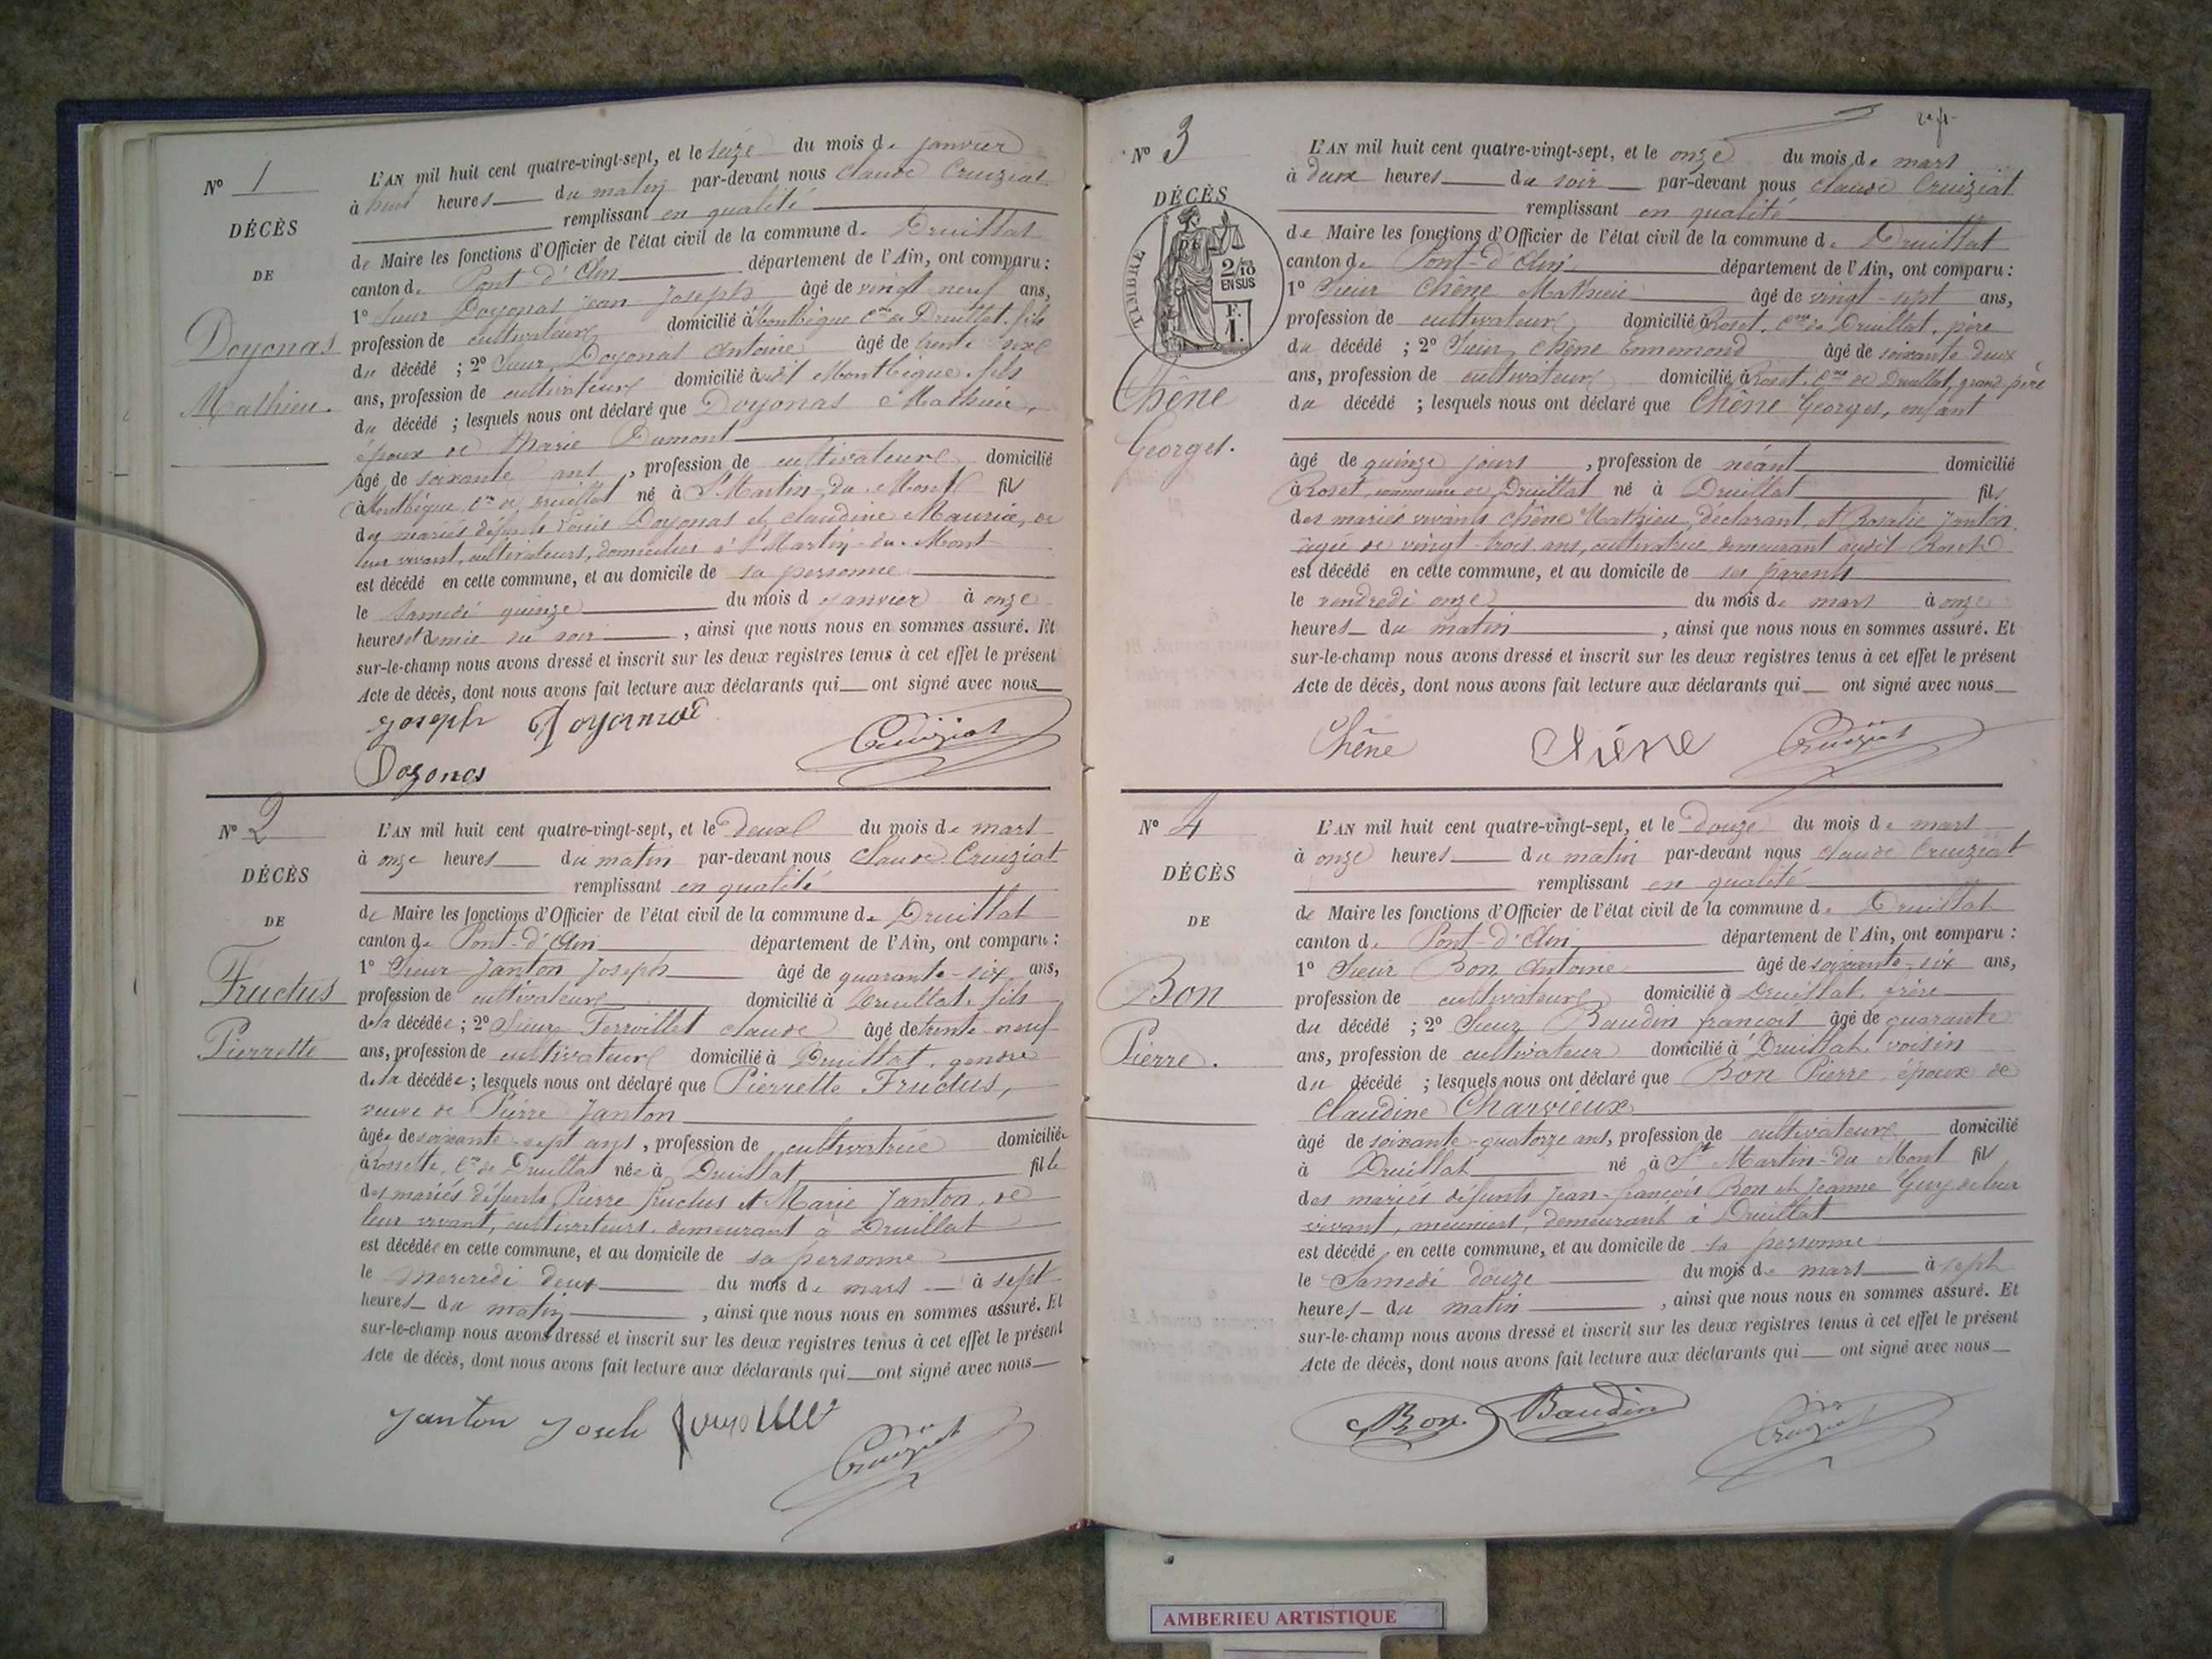 N° 1
DÉCÈS
DE
Doyonas
Mathieu.
L'AN mil huit cent quatre-vingt-sept, et le seize du mois de janvier
à huit heures du matin par-devant nous Claude Cruiziat
remplissant en qualité
de Maire les fonctions d'Officier de l'état civil de la commune de Druillat
canton de Pont-d'Ain département de l'Ain, ont comparu :
1° Sieur Doyonas Jean Joseph âgé de vingt neuf ans,
profession de cultivateur domicilié à Montbègue Cne de Druillat, fils
du décédé ; 2° Sieur Doyonas Antoine âgé de trente
ans, profession de cultivateur domicilié audit Montbègue, fils
du décédé ; lesquels nous ont déclaré que Doyonas Mathieu,
époux de Marie Dumont
âgé de soixante ans, profession de cultivateur domicilié
à Montbègue, Cne de Druillat né à St Martin-du-Mont fils
des mariés défunts Louis Doyonas et Claudine Maurice, de
leur vivant, cultivateurs, domiciliés à St Martin-du-Mont
est décédé en cette commune, et au domicile de sa personne
le samedi quinze du mois de janvier à onze
heures et demie du soir, ainsi que nous nous en sommes assuré. Et
sur-le-champ nous avons dressé et inscrit sur les deux registres tenus à cet effet le présent
Acte de décès, dont nous avons fait lecture aux déclarants qui ont signé avec nous
joseph Doyonnas
Doyonas Cruiziat
N° 2
DÉCÈS
DE
Fructus
Pierrette
L'AN mil huit cent quatre-vingt-sept, et le deux du mois de mars
à onze heures du matin par-devant nous Claude Cruiziat
remplissant en qualité
de Maire les fonctions d'Officier de l'état civil de la commune de Druillat
canton de Pont-d'Ain département de l'Ain, ont comparu :
1° Sieur Janton Joseph âgé de quarante-six ans,
profession de cultivateur domicilié à Druillat, fils
de la décédée ; 2° Sieur Ferroillet Claude âgé de trente-neuf
ans, profession de cultivateur domicilié à Druillat, gendre
de la décédée ; lesquels nous ont déclaré que Pierrette Fructus,
veuve de Pierre Janton
âgée de soixante-sept ans, profession de cultivatrice domiciliée
à Rossette, Cne de Druillat née à Druillat fille
des mariés défunts Pierre Fructus et Marie Janton, de
leur vivant, cultivateurs, demeurant à Druillat
est décédée en cette commune, et au domicile de sa personne
le mercredi deux du mois de mars à sept
heures du matin, ainsi que nous nous en sommes assuré. Et
sur-le-champ nous avons dressé et inscrit sur les deux registres tenus à cet effet le présent
Acte de décès, dont nous avons fait lecture aux déclarants qui ont signé avec nous
Janton Joseh
Cruiziat
N° 3
DÉCÈS
DE
TIMBRE
2/10
EN SUS
F.
1.
Chêne
Georges.
L'AN mil huit cent quatre-vingt-sept, et le onze du mois de mars
à deux heures du soir par-devant nous Claude Cruiziat
remplissant en qualité
de Maire les fonctions d'Officier de l'état civil de la commune de Druillat
canton de Pont-d'Ain département de l'Ain, ont comparu :
1° Sieur Chêne Mathieu âgé de vingt-sept ans,
profession de cultivateur domicilié à Roset, Cne de Druillat, père
du décédé ; 2° Sieur Chêne Ennemond âgé de soixante deux
ans, profession de cultivateur domicilié à Roset, Cne de Druillat, grand père
du décédé ; lesquels nous ont déclaré que Chêne Georges, enfant
âgé de quinze jours, profession de néant domicilié
à Roset, commune de Druillat né à Druillat fils
des mariés vivants Chêne Mathieu, déclarant, et Rosalie Janton,
âgée de vingt-trois ans, cultivatrice demeurant audit Roset
est décédé en cette commune, et au domicile de ses parents
le vendredi onze du mois de mars à onze
heures du matin, ainsi que nous nous en sommes assuré. Et
sur-le-champ nous avons dressé et inscrit sur les deux registres tenus à cet effet le présent
Acte de décès, dont nous avons fait lecture aux déclarants qui ont signé avec nous
Chêne Chêne Cruiziat
N° 4
DÉCÈS
DE
Bon
Pierre.
L'AN mil huit cent quatre-vingt-sept, et le douze du mois de mars
à onze heures du matin par-devant nous Claude Cruiziat
remplissant en qualité
de Maire les fonctions d'Officier de l'état civil de la commune de Druillat
canton de Pont-d'Ain département de l'Ain, ont comparu :
1° Sieur Bon Antoine âgé de soixante-six ans,
profession de cultivateur domicilié à Druillat, frère
du décédé ; 2° Sieur Baudin françois âgé de quarante
ans, profession de cultivateur domicilié à Druillat, voisin
du décédé ; lesquels nous ont déclaré que Bon Pierre, époux de
Claudine Charvieux
âgé de soixante-quatorze ans, profession de cultivateur domicilié
à Druillat né à St Martin-du-Mont fils
des mariés défunts Jean-françois Bon et Jeanne Guy, de leur
vivant, meuniers, demeurant à Druillat
est décédé en cette commune, et au domicile de sa personne
le Samedi douze du mois de mars à sept
heures du matin, ainsi que nous nous en sommes assuré. Et
sur-le-champ nous avons dressé et inscrit sur les deux registres tenus à cet effet le présent
Acte de décès, dont nous avons fait lecture aux déclarants qui ont signé avec nous
Bon Baudin Cruiziat
AMBERIEU ARTISTIQUE